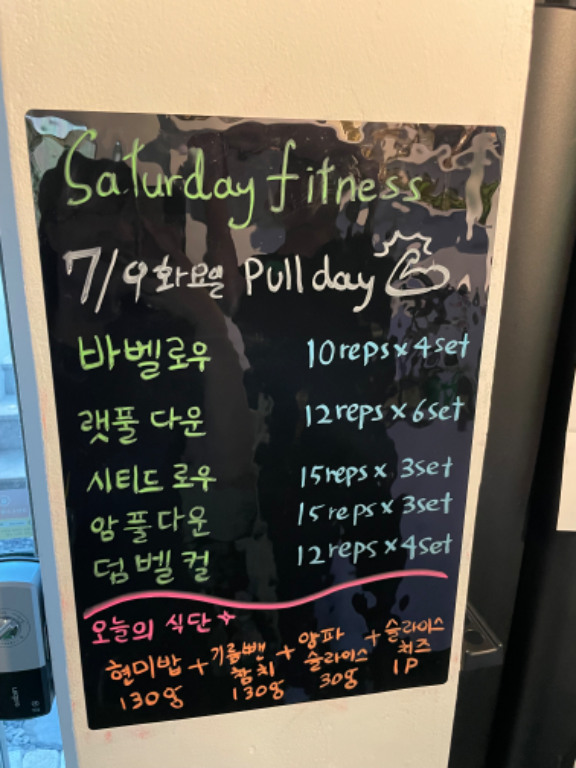 Saturday fitness
7/9 화요일 Pull day
바벨로우 10reps x 4set
랫풀 다운 12reps x 6set
시티드 로우 15reps x 3set
암풀다운 15reps x 3set
덤벨 컬 12reps x 4set
오늘의 식단
현미밥 130g + 기름뺀 참치 130g + 양파 슬라이스 30g + 슬라이스 치즈 1P